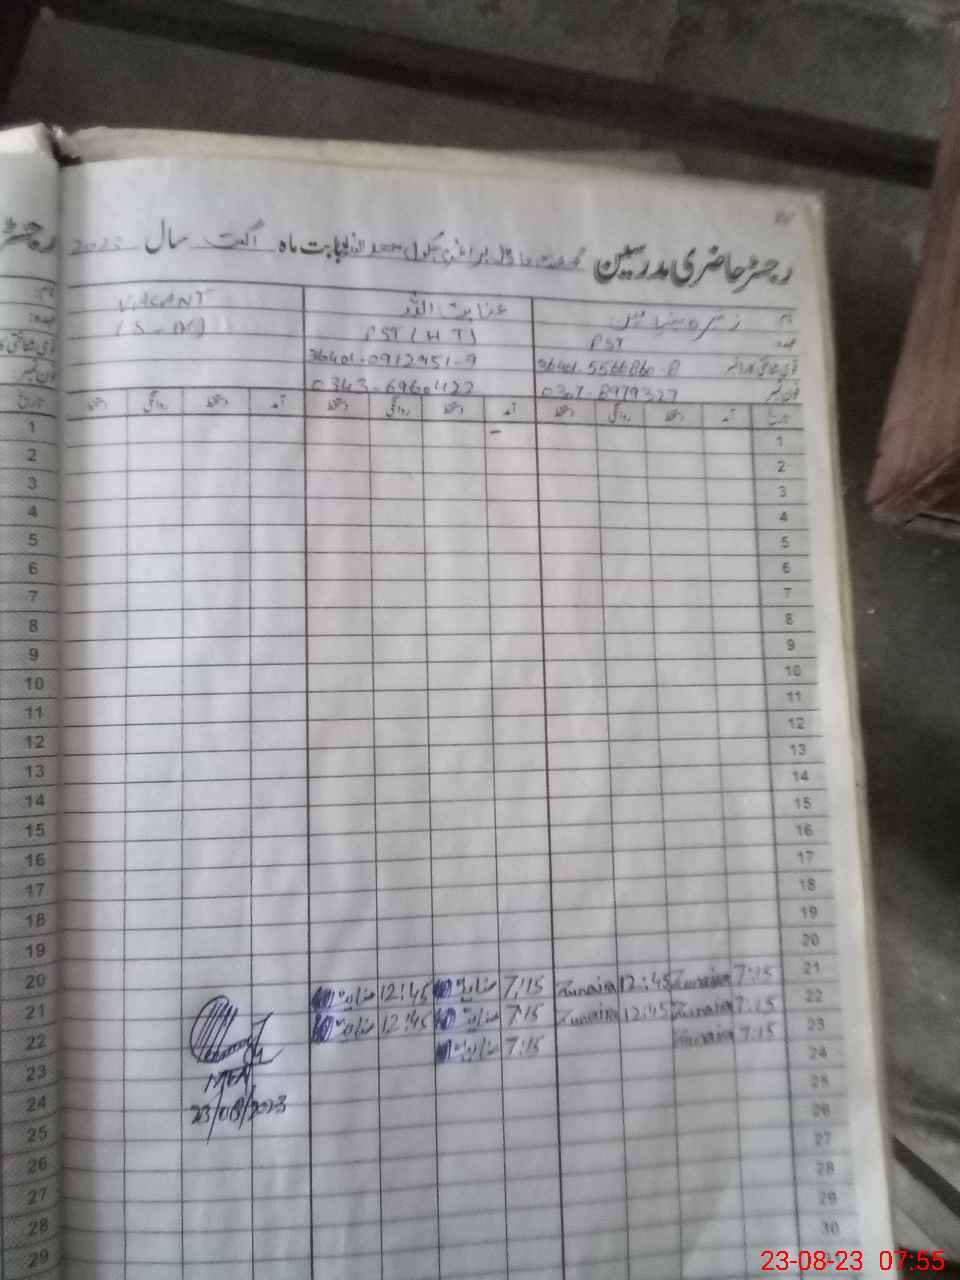 رجسٹر حاضری مدرسین گورنمنٹ ماڈل پرائمری سکول بابت ماہ اگست سال 2023
نام عنایت اللہ VACANT
عہدہ PST PST (HT)
36401-5566860-8 36401-0912951-9
فون نمبر 0307-8979327 0343-6960422
تاریخ آمد دستخط روانگی دستخط آمد دستخط روانگی دستخط آمد دستخط روانگی دستخط
1 1
2 2
3 3
4 4
5 5
6 6
7 7
8 8
9 9
10 10
11 11
12 12
13 13
14 14
15 15
16 16
17 17
18 18
19 19
20 20
21 7:15 Zunaira 12:45 Zunaira 7:15 عنایت 12:45 عنایت 21
22 7:15 Zunaira 12:45 Zunaira 7:15 عنایت 12:45 عنایت 22
23 7:15 Zunaira 7:15 عنایت 23
MEA
23/08/2023
24 24
25 25
26 26
27 27
28 28
29 29
30
23-08-23 07:55